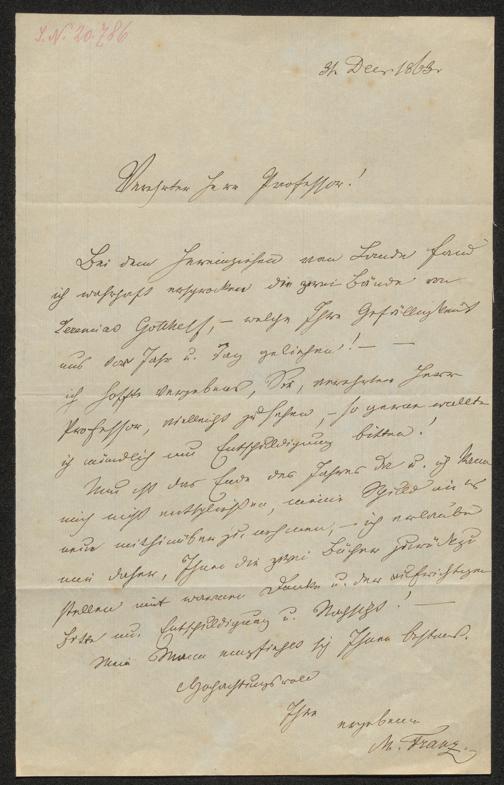 I.N. 20.786
31. Decr 1863.
Verehrter Herr Professor!
Bei dem Hereinziehen vom Lande fand
ich wahrhaft erschrocken die zwei Bände von
Jeremias Gotthelf, – welche Ihre Gefälligkeit
uns vor Jahr u. Tag geliehen! – –
ich hoffte vergebens, Sie, verehrter Herr
Professor, vielleicht zu sehen, – so gerne wollte
ich mündlich um Entschuldigung bitten!
Nun ist das Ende des Jahres da u. ich kann
mich nicht entschließen, meine Schuld ins
neue mithinüber zu nehmen, – ich erlaube
mir daher, Ihnen die zwei Bücher zurückzu
stellen mit warmem Danke u. der aufrichtigen
Bitte um Entschuldigung u. Nachsicht! –
Mein Mann empfiehlt sich Ihnen bestens.
Hochachtungsvoll
Ihre
ergebene
M. Franz.